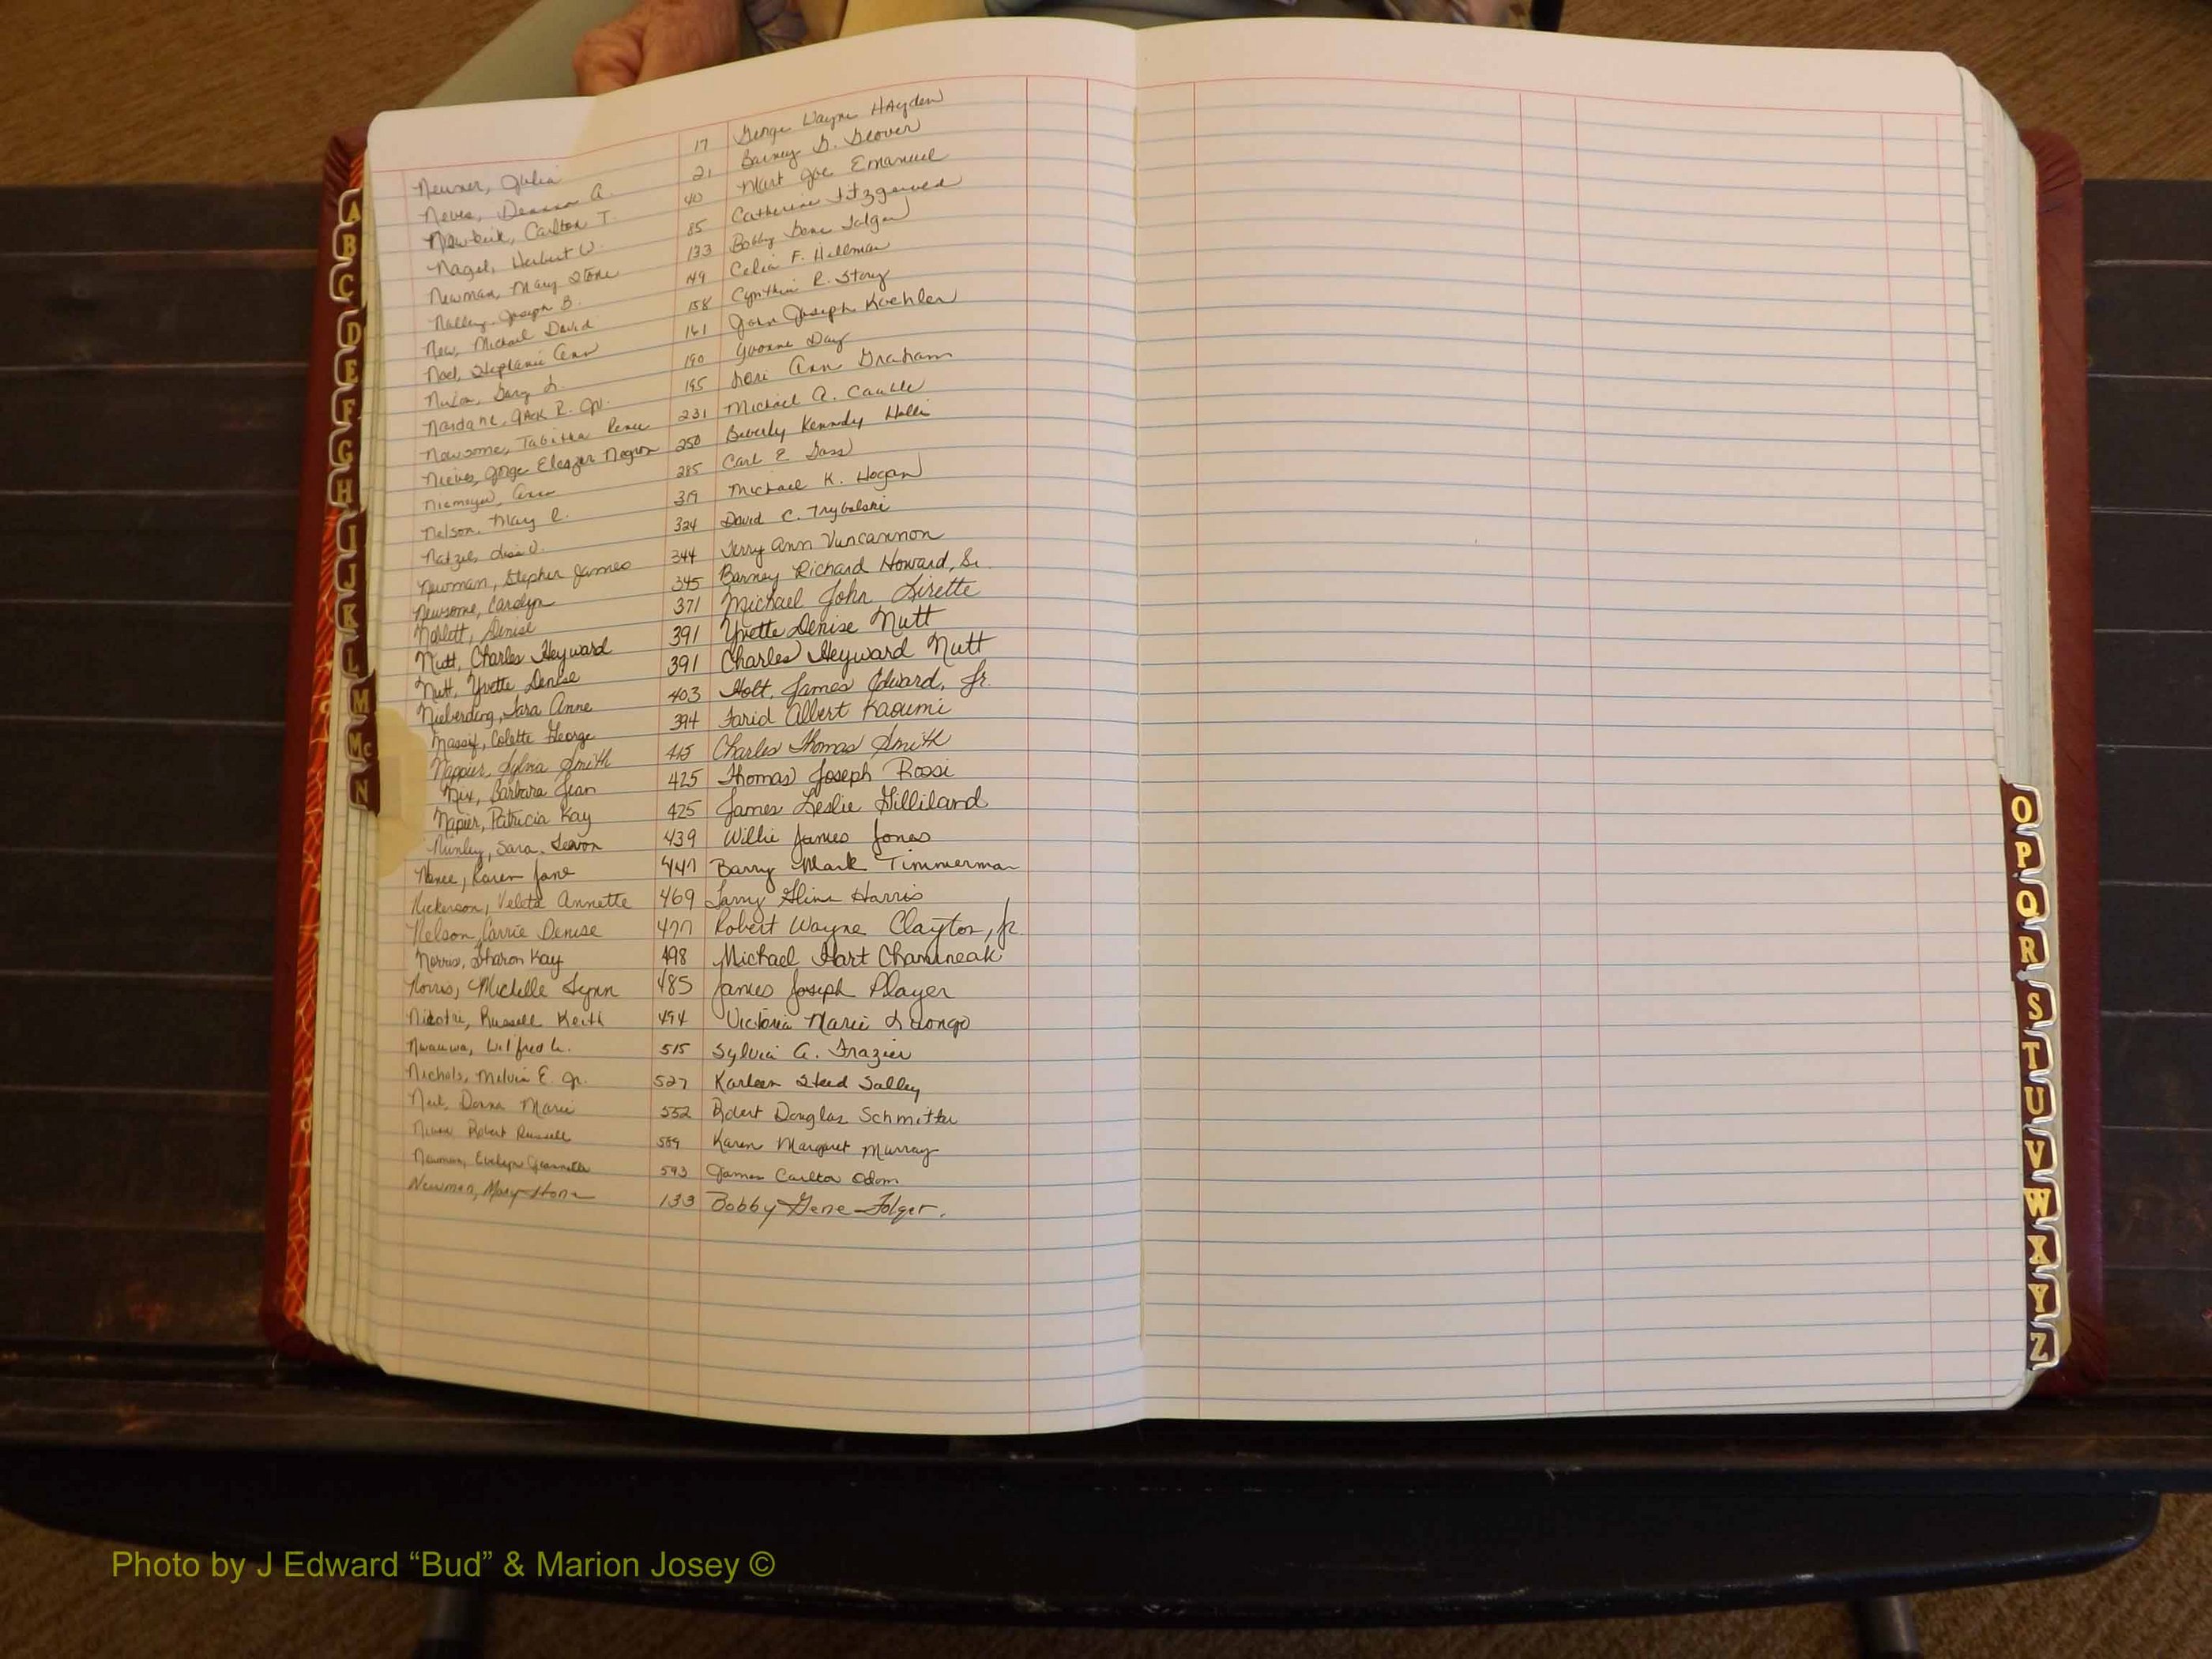 Neumer, Julia 17 George Wayne Hayden
Neves, Deanna A. 21 Barney G. Glover
Newkirk, Carlton T. 40 Mart Joe Emanuel
Nagel, Herbert W. 85 Catherine Fitzgerald
Newman, Mary Stone 133 Bobby Gene Folger
Nalley, Joseph B. 149 Celia F. Hellman
New, Michael David 158 Cynthia R. Story
Noel, Stephanie Ann 161 John Joseph Koehler
Nixon, Gary L. 190 Yvonne Day
Nardane, Jack R. Jr. 195 Lori Ann Graham
Newsome, Tabitha Renee 231 Michael A. Caulle
Nieves, Jorge Eleazer Negron 250 Beverly Kennedy Hollis
Niemeyer, Ann 285 Carl E Gass
Nelson, Mary C. 319 Michael K. Hogan
Natzel, Lisa D. 324 David C. Trybalski
Newman, Stephen James 344 Terry Ann Vuncannon
Newsome, Carolyn 345 Barney Richard Howard, Sr.
Noblett, Denise 371 Michael John Lisette
Nutt, Charles Heyward 391 Yvette Denise Nutt
Nutt, Yvette Denise 391 Charles Heyward Nutt
Nieberding, Tara Anne 403 Holt, James Edward, Jr.
Nassif, Colette George 394 Farid Albert Kaoumi
Nappier, Sylvia Smith 415 Charles Thomas Smith
Nix, Barbara Jean 425 Thomas Joseph Rossi
Napier, Patricia Kay 425 James Leslie Gilliland
Nunley, Sara Levon 439 Willie James Jones
Nance, Karen Jane 447 Barry Mark Timmerman
Nickerson, Veleta Annette 469 Larry Glinn Harris
Nelson, Carrie Denise 477 Robert Wayne Clayton, Jr.
Norris, Sharon Kay 498 Michael Hart Chamneak
Norris, Michelle Lynn 485 James Joseph Player
Nicotri, Russell Keith 494 Victoria Marie Luongo
Nwauwa, Wilfred U. 515 Sylvia A. Frazier
Nichols, Melvin E. Jr. 527 Karleen Steed Salley
Neil, Donna Marie 552 Robert Douglas Schmitter
Robert Russell 589 Karen Margaret Murray
Newman, Evelyn Jeannette 593 James Carlton Odom
Newman, Mary Stone 133 Bobby Gene Folger.
A
B
C
D
E
F
G
H
I
J
K
L
M
Mc
N
O
P
Q
R
S
T
U
V
W
X
Y
Z
Photo by J Edward “Bud” & Marion Josey ©